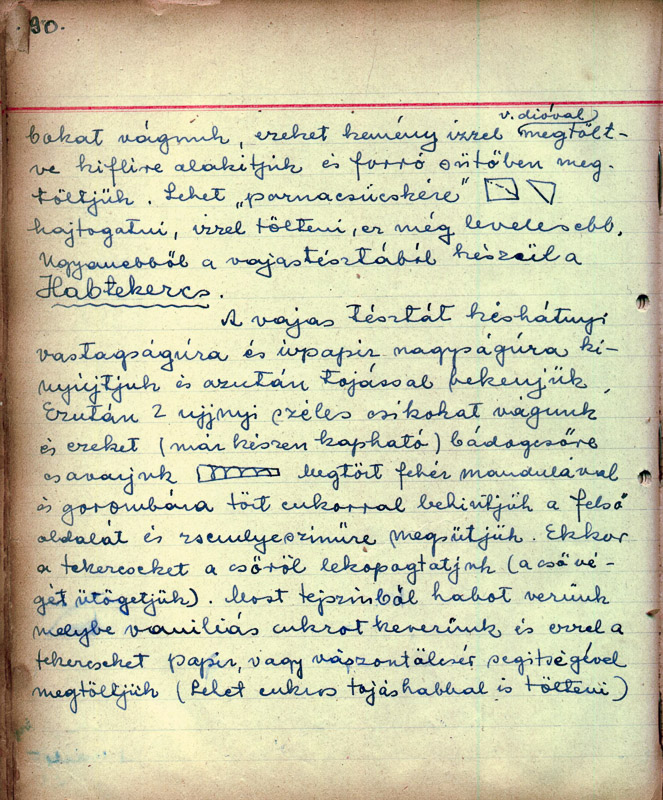 90.
v. dióval
bokat vágunk, ezeket kemény izzel megtölt-
ve kiflire alakitjuk és forró sütőben meg-
töltjük. Lehet „párnacsücskére"
hajtogatni, izzel tölteni, ez még levelesebb.
Ugyanebből a vajastésztából készül a
Habtekercs.
A vajas tésztát késhátnyi
vastagságúra és ivpapir nagyságúra ki-
nyújtjuk és azután tojással bekenjük.
Ezután 2 ujjnyi széles csikokat vágunk
és ezeket (már készen kapható) bádogcsőre
csavarjuk Megtört fehér mandulával
és gorombára tört cukorral behintjük a felső
oldalát és zsemlyeszinüre megsütjük. Ekkor
a tekercseket a csőről lekopogtatjuk (a cső vé-
gét ütögetjük). Most tejszinból habot verünk
melybe vaniliás cukrot keverünk és ezzel a
tekercseket papir, vagy vászontölcsér segitségével
megtöltjük (Lehet cukros tojáshabbal is tölteni)